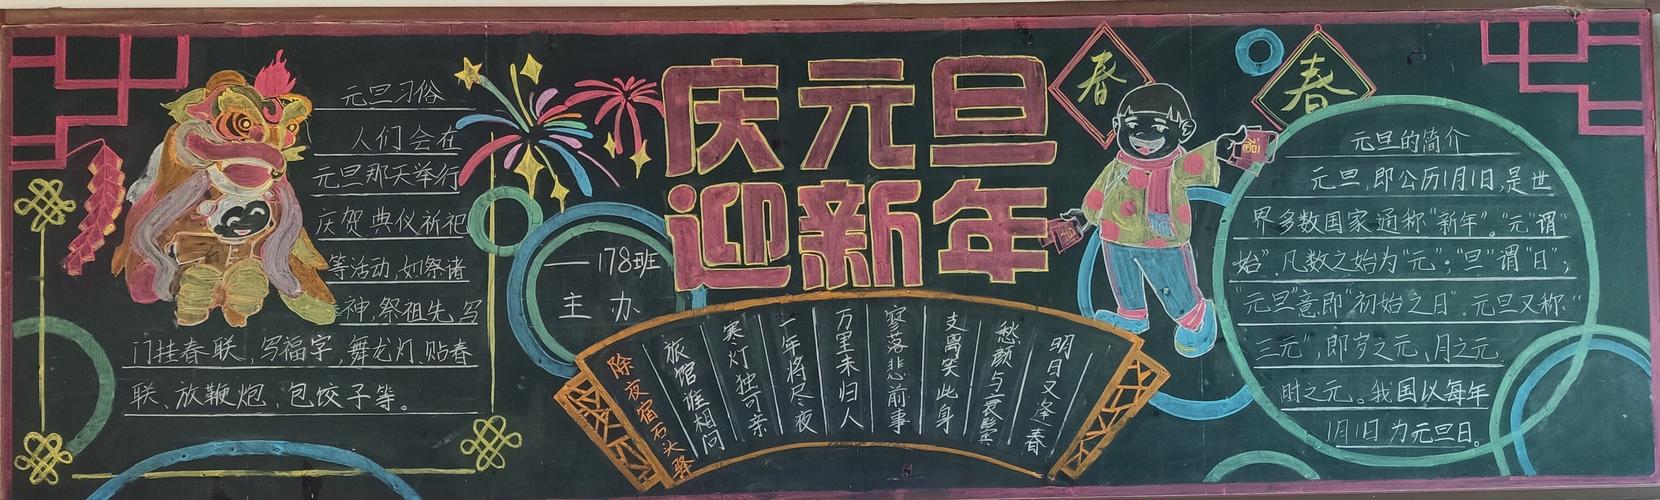 元旦习俗
人们会在
元旦那天举行
庆贺典仪祈祀
等活动,如祭诸
神,祭祖先,写
门挂春联,写福字,舞龙灯,贴春
联、放鞭炮,包饺子等。
庆元旦
迎新年
一178班
主办
除夜宿石头驿
旅馆谁相问
寒灯独可亲
一年将尽夜
万里未归人
寥落悲前事
支离笑此身
愁颜与衰鬓
明日又逢春
春
春
福
元旦的简介
元旦,即公历1月1日,是世
界多数国家通称“新年”。“元”谓“
始”,凡数之始为“元”;“旦”谓“日”;
“元旦”意即“初始之日”.元旦又称“
三元”,即岁之元、月之元
时之元。我国以每年
1月1日为元旦日。